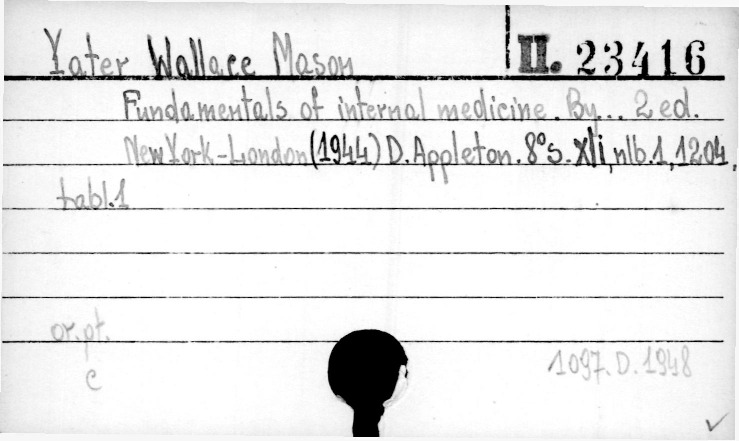 Yater Wallace Mason II. 23416
Fundamentals of internal medicine. By... 2 ed.
New York-London (1944) D. Appleton. 8° s. XLi, nlb. 1, 1204,
tabl. 1
or. pt.
c
1097. D. 1948